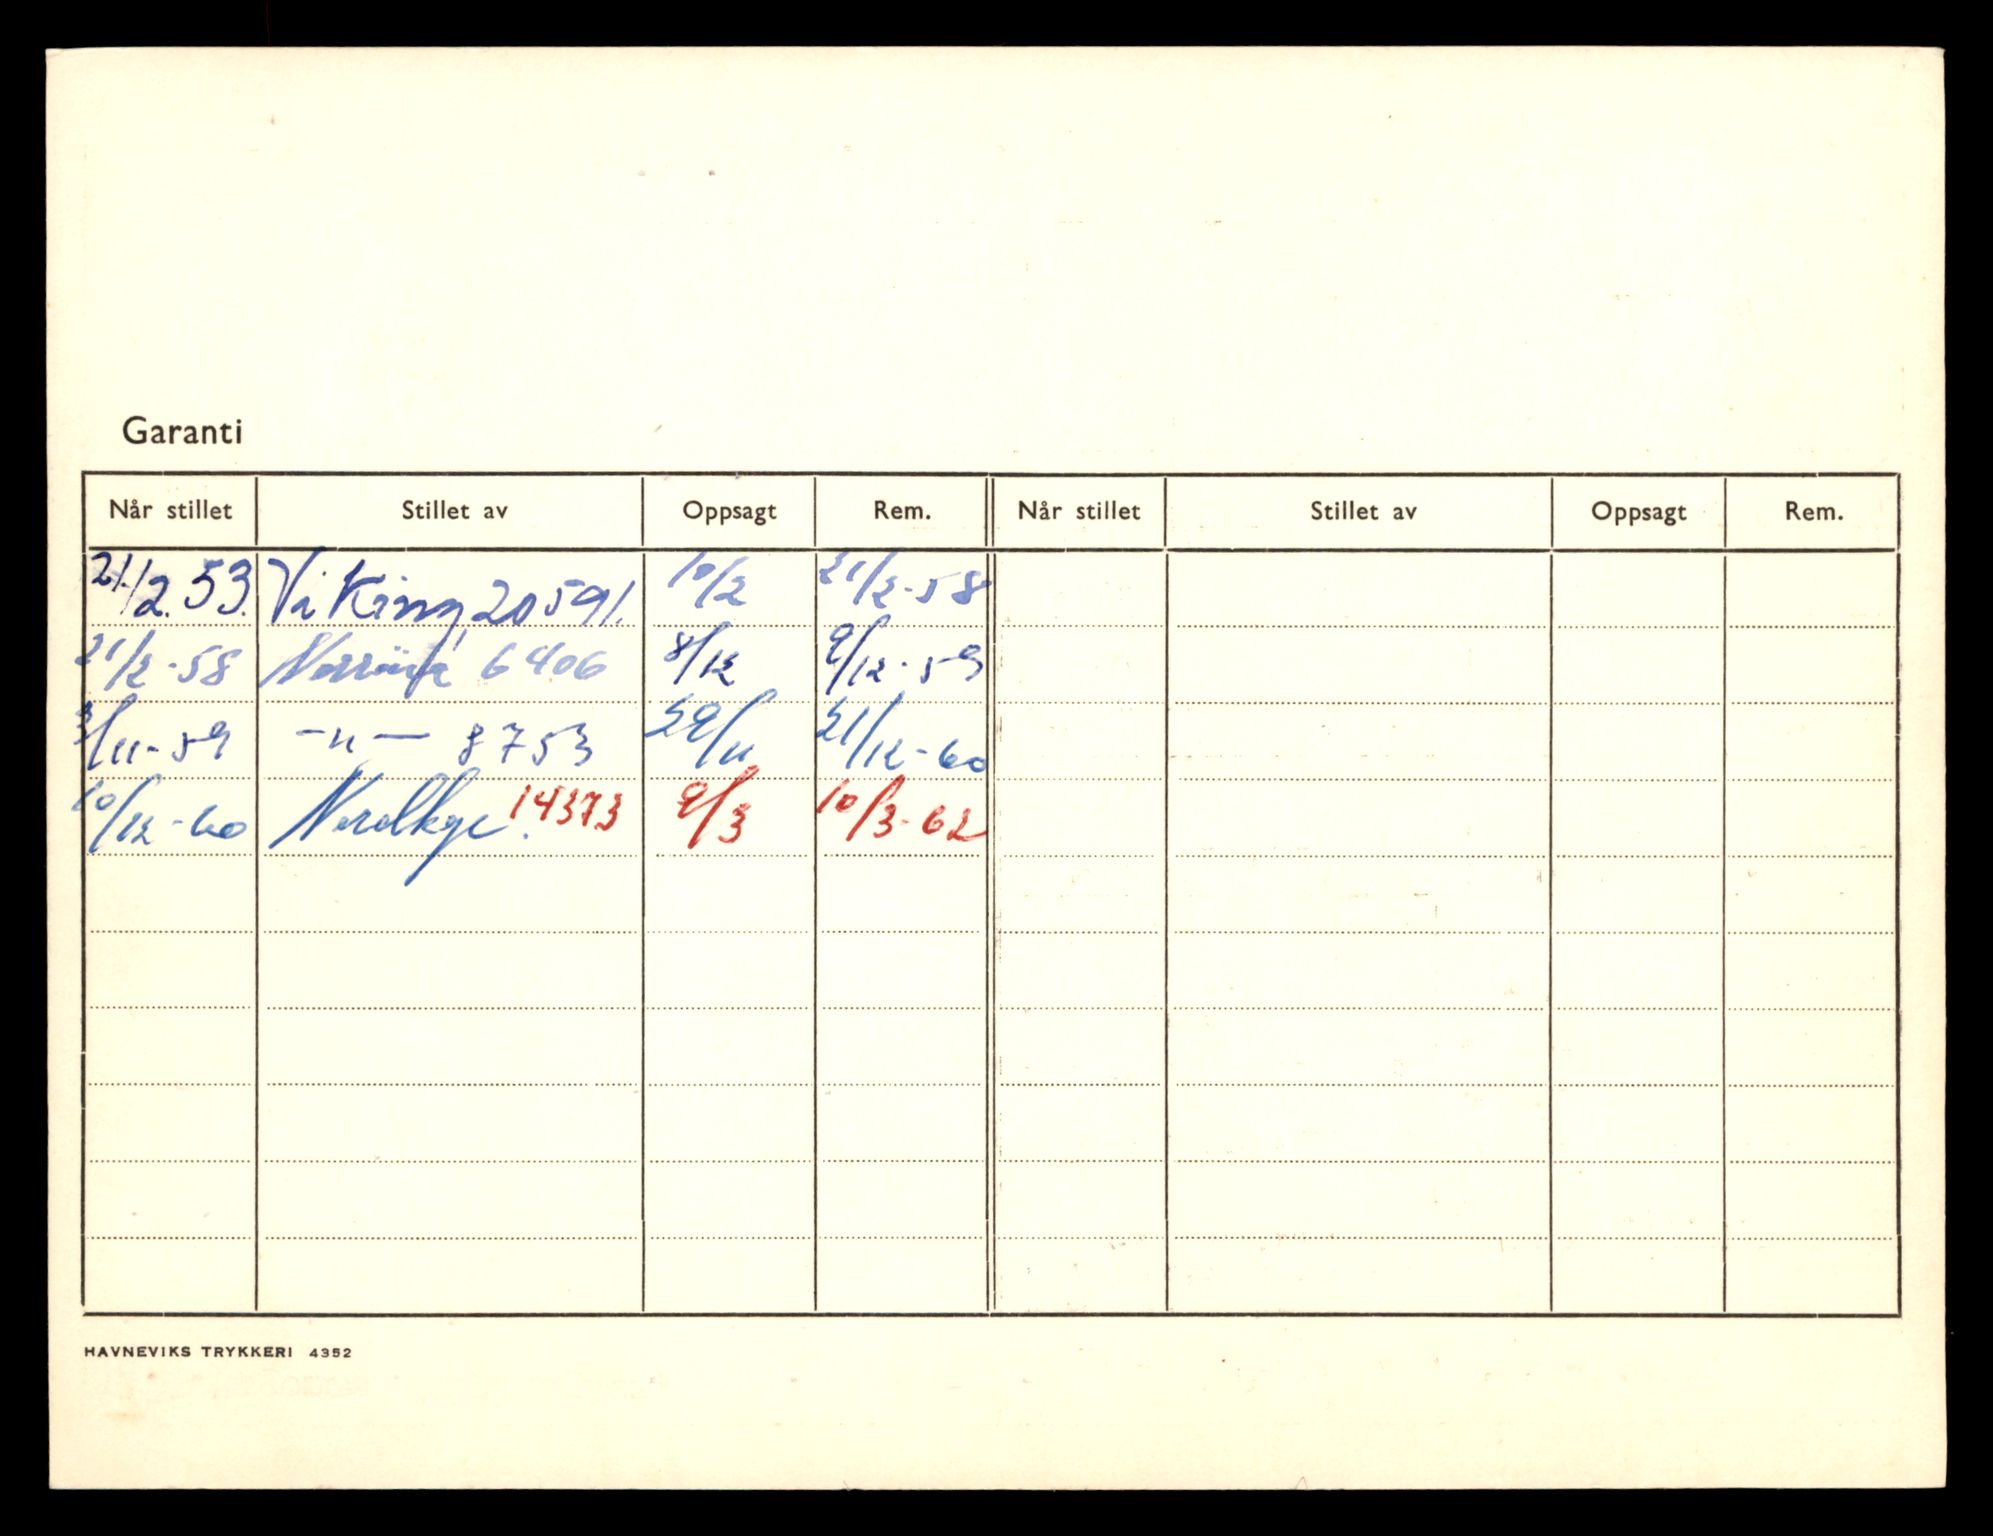 Garanti
Når stillet Stillet av Oppsagt Rem. Når stillet Stillet av Oppsagt Rem.
21./2. 53. Viking 20591. 10/2 21/2-58
21/2-58 Norröna 6406 8/12 9/12-59
3/11-59 -"- 8753 29/11 21/12-60
10/12-60 Nordkyn. 14373 9/3 10/3-62
HAVNEVIKS TRYKKERI 4352